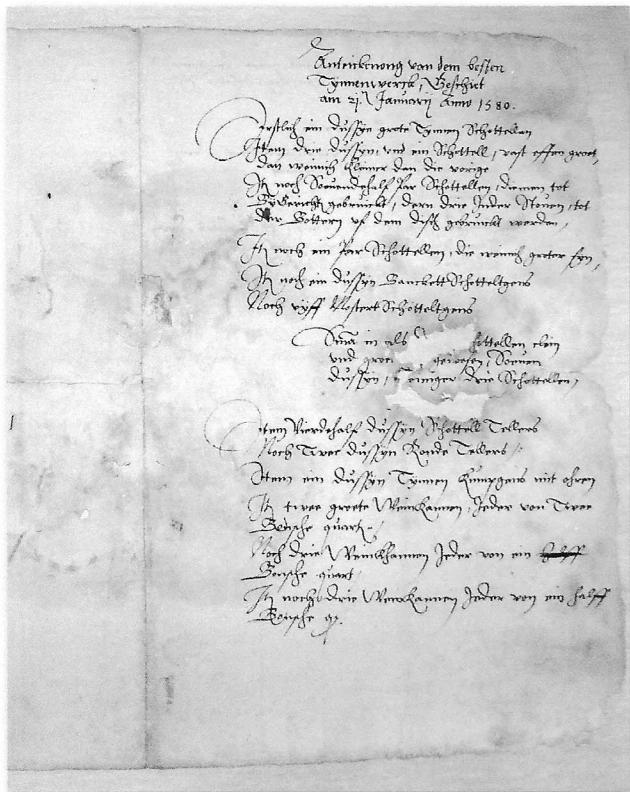 Anteickenong van dem besten
Tynnenwerck, Beschiet
am 21 Januarij Anno 1580.
Erstlich ein dussyn grote Tynnen Schottellen
Item drie dussyn, und ein Schottell, vast effen groet,
dan weinich kleiner dan die vorige
It noch Soevendehalf par Schottellen, dienen tot
gebruickt, dern drie Jeder
Bottern uf dem disch gebruickt werden,
It noch ein par Schottellen, die weinich groter syn,
It noch ein dussyn Banckett Schotteltgens
Noch vyff Mostert Schotteltgens
Suma in als hottellen clein
und groe gewesen, Soeven
dussyn, weiniger drie Schottellen,
Item Vierdehalf dussyn Schottell Tellers
Noch Twee dussyn Ronde Tellers
Item ein dussyn Tynnen kumpgens mit ohren
It twee groete Weinkannen, Jeder von Twee
quart
Noch drie Weinkhannen Jeder von ein halff
quart
It noch drie Weinkannen Jeder von ein halff